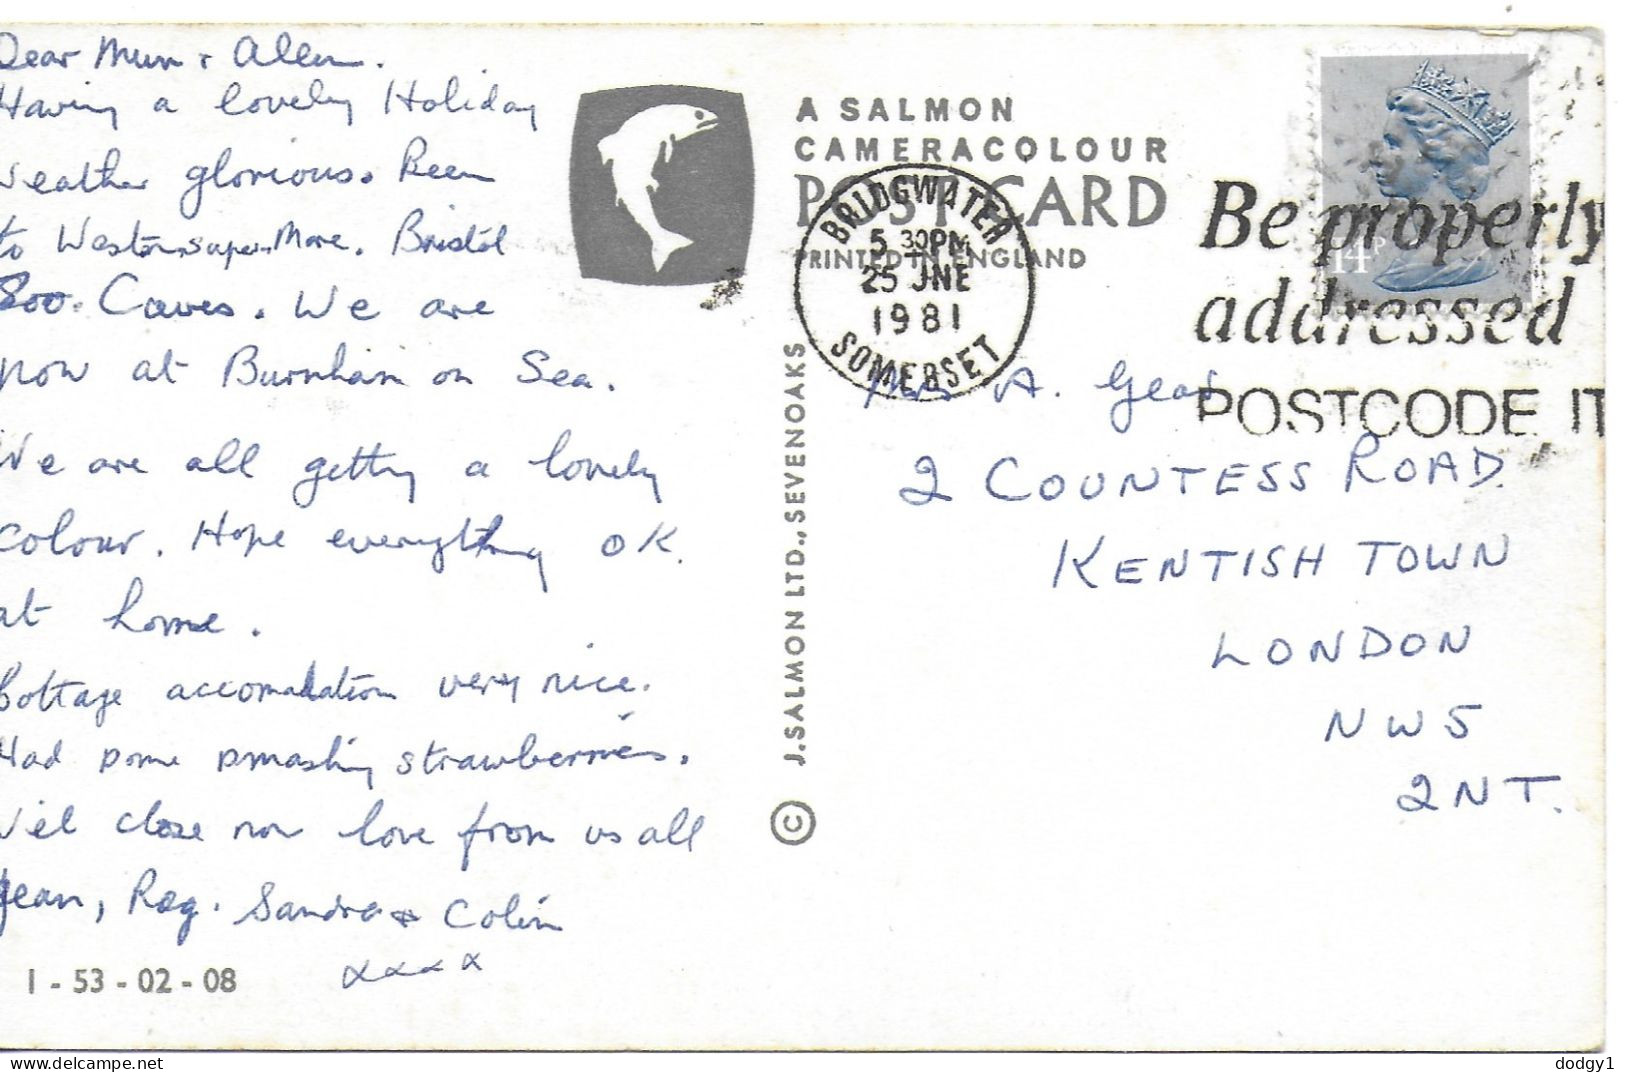 Dear Mum + Allen.
Having a lovely Holiday
Weather glorious. Been
to Weston-super-Mare. Bristol
Zoo. Caves. We are
now at Burnham on Sea.
We are all getting a lovely
colour. Hope everything OK.
at home.
Cottage accomadation very nice.
Had some smashing strawberries.
We'l close now love from us all
Jean, Reg. Sandra + Colin
xxxx
I - 53 - 02 - 08
A SALMON
CAMERACOLOUR
POST CARD
PRINTED IN ENGLAND
J. SALMON LTD., SEVENOAKS ©
BRIDGWATER
5 30PM
25 JNE
1981
SOMERSET
Be properly
addressed
POSTCODE IT
14P
Mrs A.
2 COUNTESS ROAD
KENTISH TOWN
LONDON
NW5
2NT.
dodgy1